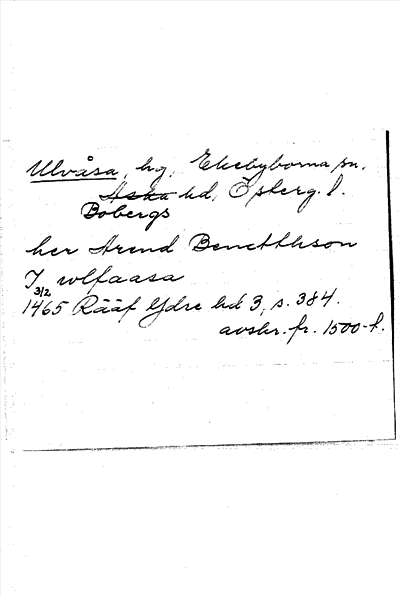 Ulvåsa, hg, Ekebyborna sn.
Aska hd, Österg. l.
Bobergs
her Arend Benctthson
J wlfaasa
3/2
1465 Rääf Ydre hd 3, s. 384.
avskr. fr. 1500-t.